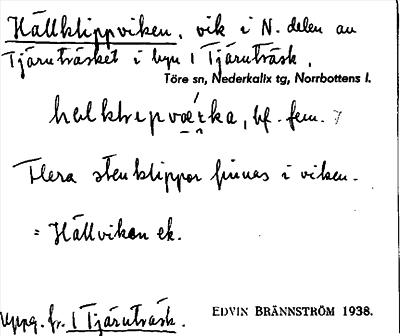 Hällklippviken, vik i N. delen av
Tjäruträsket i byn 1 Tjäruträsk.
Töre sn, Nederkalix tg, Norrbottens l.
bf. fem.
Flera stenklippor finnas i viken.
= Hällviken ek.
Uppg. fr. 1 Tjäruträsk.
EDVIN BRÄNNSTRÖM 1938.